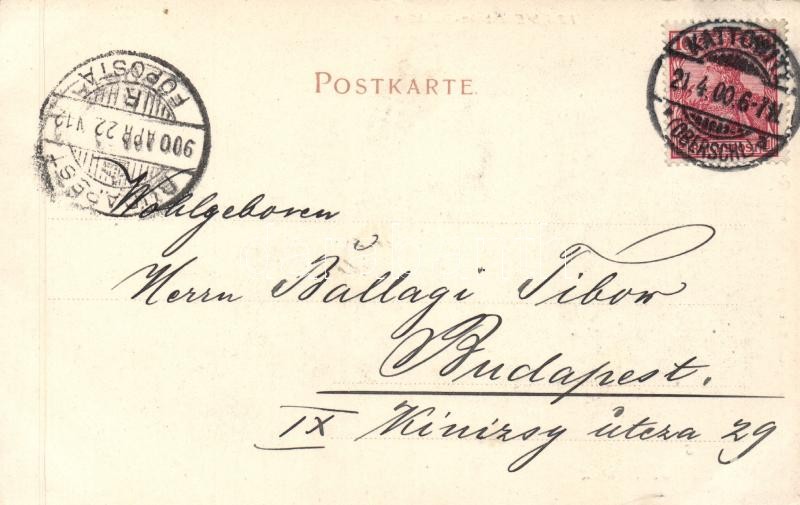 POSTKARTE.
KATTOWITZ
21.4.00.6-7N.
* (OBERSCHL) *
BUDAPEST
900 APR 22 V12
FŐPOSTA
Wohlgeboren
Herrn Ballagi Tibor
Budapest.
IX Kinizsy útcza 29